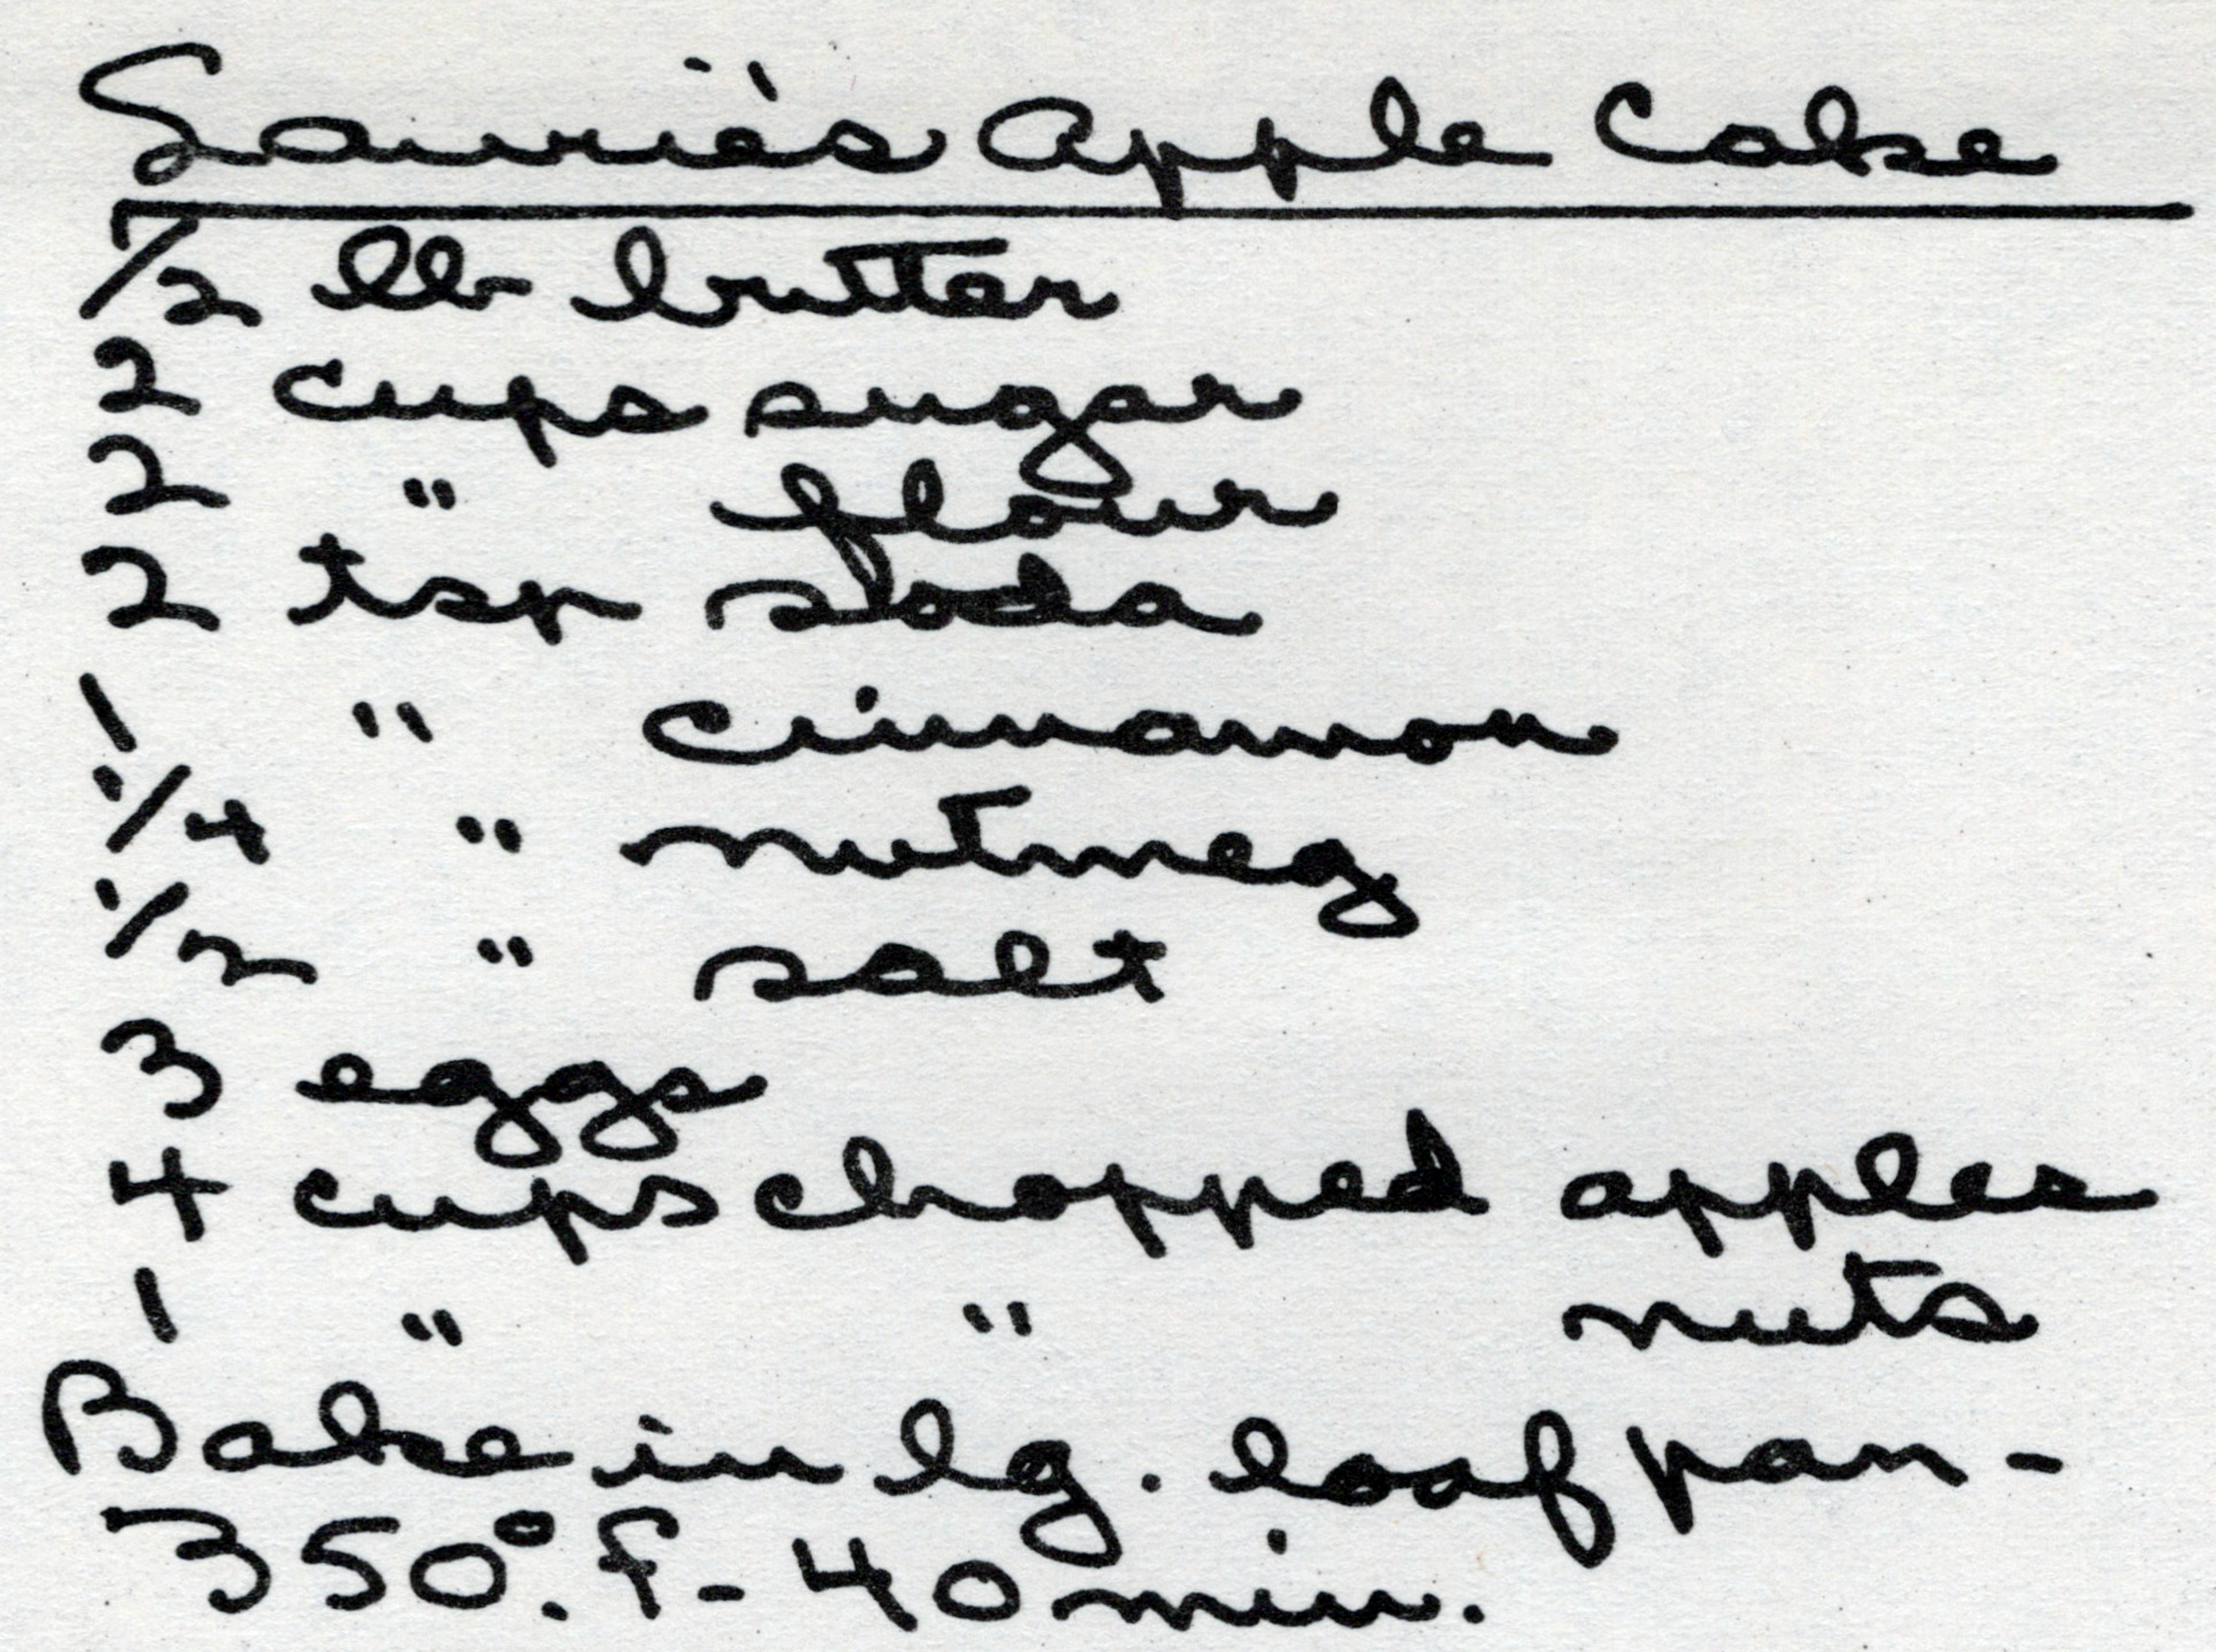 Laurie's Apple Cake
1/2 lb butter
2 cups sugar
2 " flour
2 tsp soda
1 " cinnamon
1/4 " nutmeg
1/2 " salt
3 eggs
4 cups chopped apples
1 " " nuts
Bake in lg. loaf pan -
350°. F - 40 min.